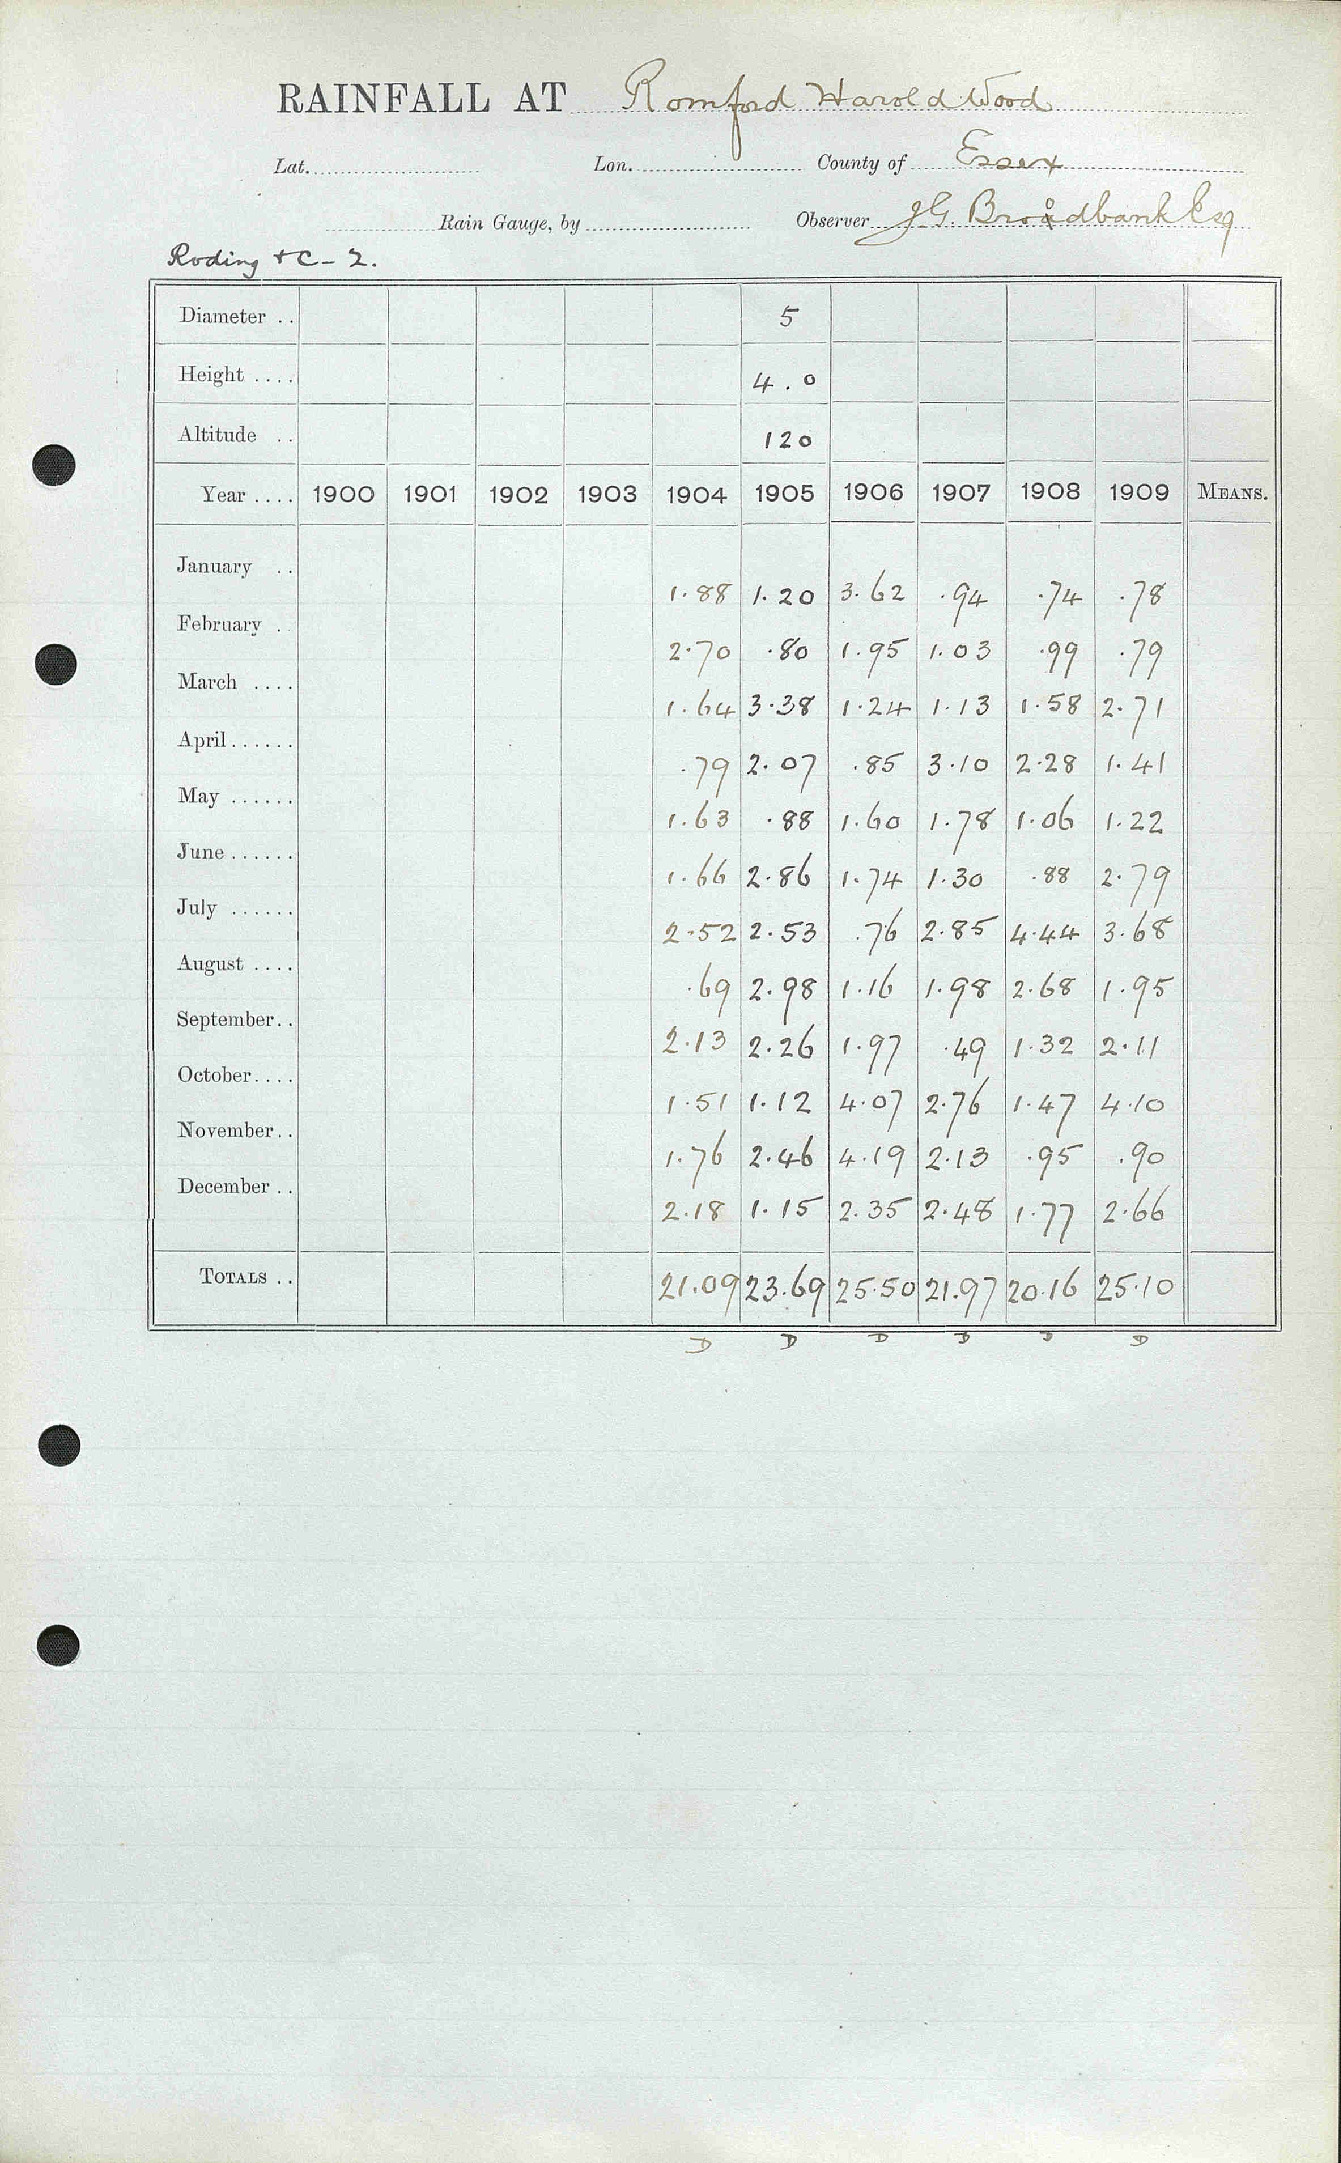 RAINFALL AT Romford Harold Wood
Lat. Lon. County of Essex
Rain Gauge, by Observer J G. Broadbank Esq
Roding + C - 2.
Diameter .. 5
Height .... 4.0
Altitude .. 120
Year .... 1900 1901 1902 1903 1904 1905 1906 1907 1908 1909 MEANS.
January .. 1.88 1.20 3.62 .94 .74 .78
February . 2.70 .80 1.95 1.03 .99 .79
March .... 1.64 3.38 1.24 1.13 1.58 2.71
April...... .79 2.07 .85 3.10 2.28 1.41
May ...... 1.63 .88 1.60 1.78 1.06 1.22
June ...... 1.66 2.86 1.74 1.30 .88 2.79
July ...... 2.52 2.53 .76 2.85 4.44 3.68
August .... .69 2.98 1.16 1.98 2.68 1.95
September.. 2.13 2.26 1.97 .49 1.32 2.11
October.... 1.51 1.12 4.07 2.76 1.47 4.10
November.. 1.76 2.46 4.19 2.13 .95 .90
December .. 2.18 1.15 2.35 2.48 1.77 2.66
TOTALS .. 21.09 23.69 25.50 21.97 20.16 25.10
D D D D D D